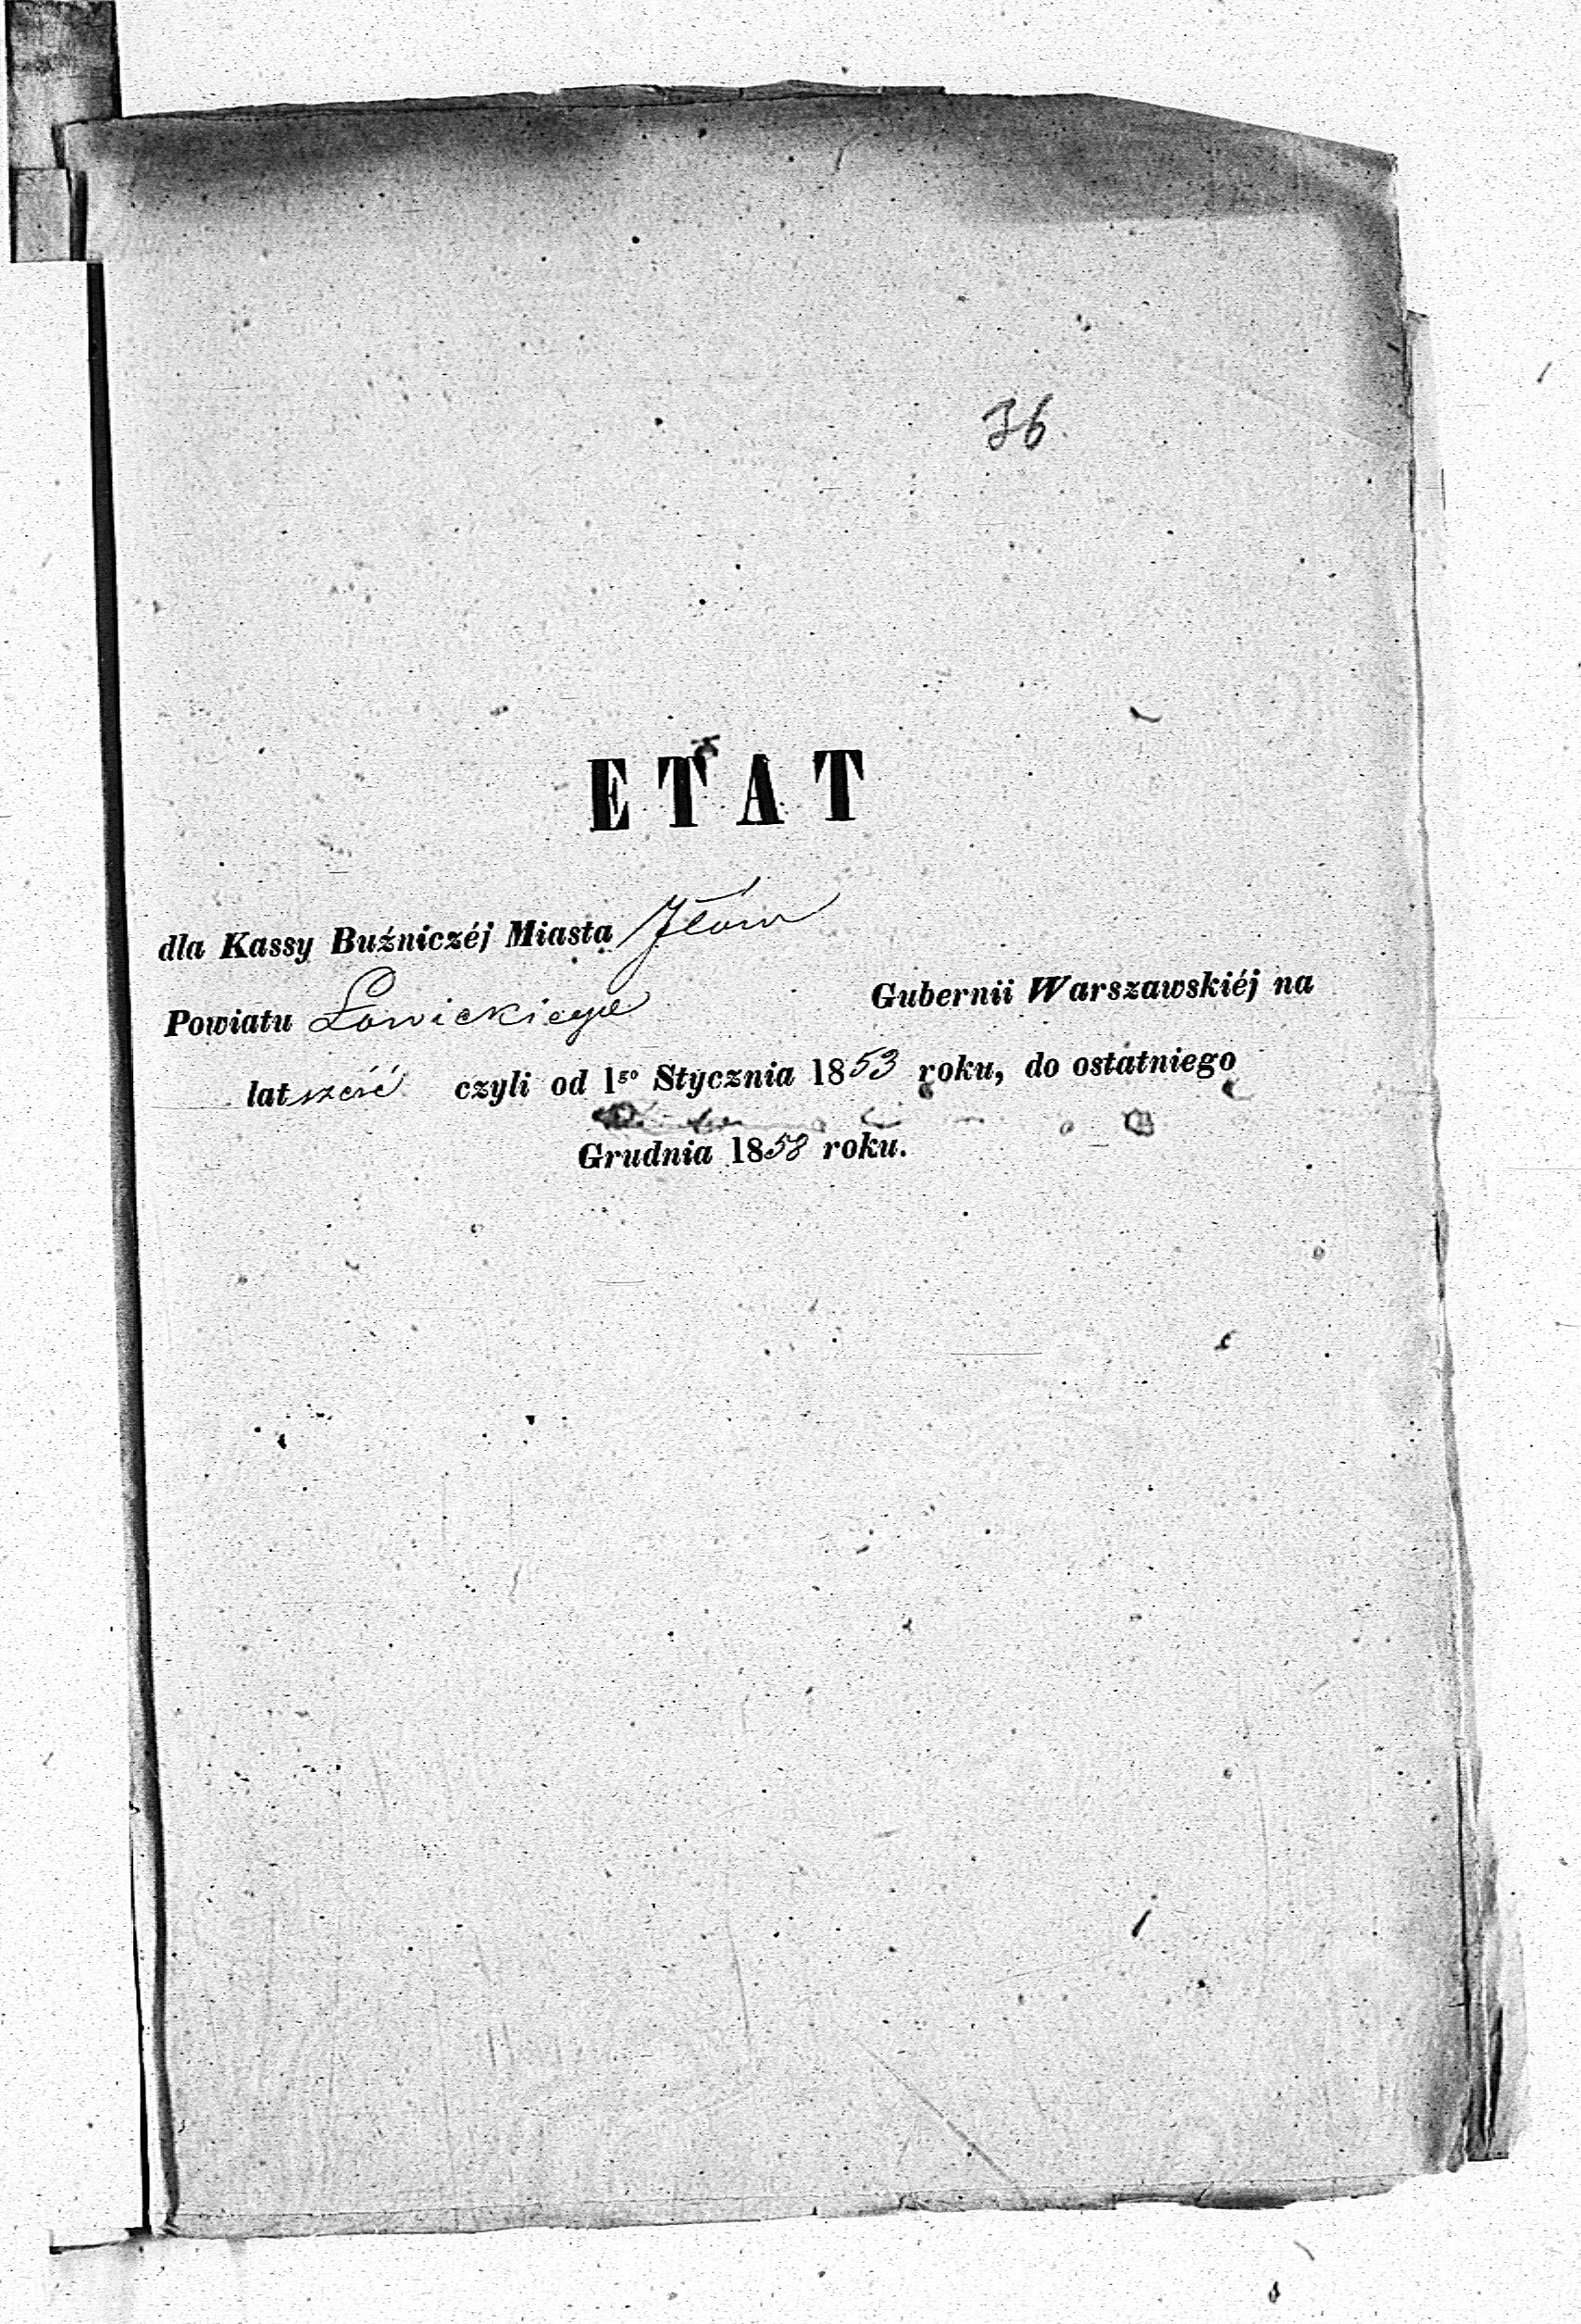 36
ETAT
dla Kassy Buźniczéj Miasta Iłów
Powiatu Łowickiego Gubernii Warszawskiéj na
lat sześć czyli od 1go Stycznia 1853 roku, do ostatniego
Grudnia 1858 roku.